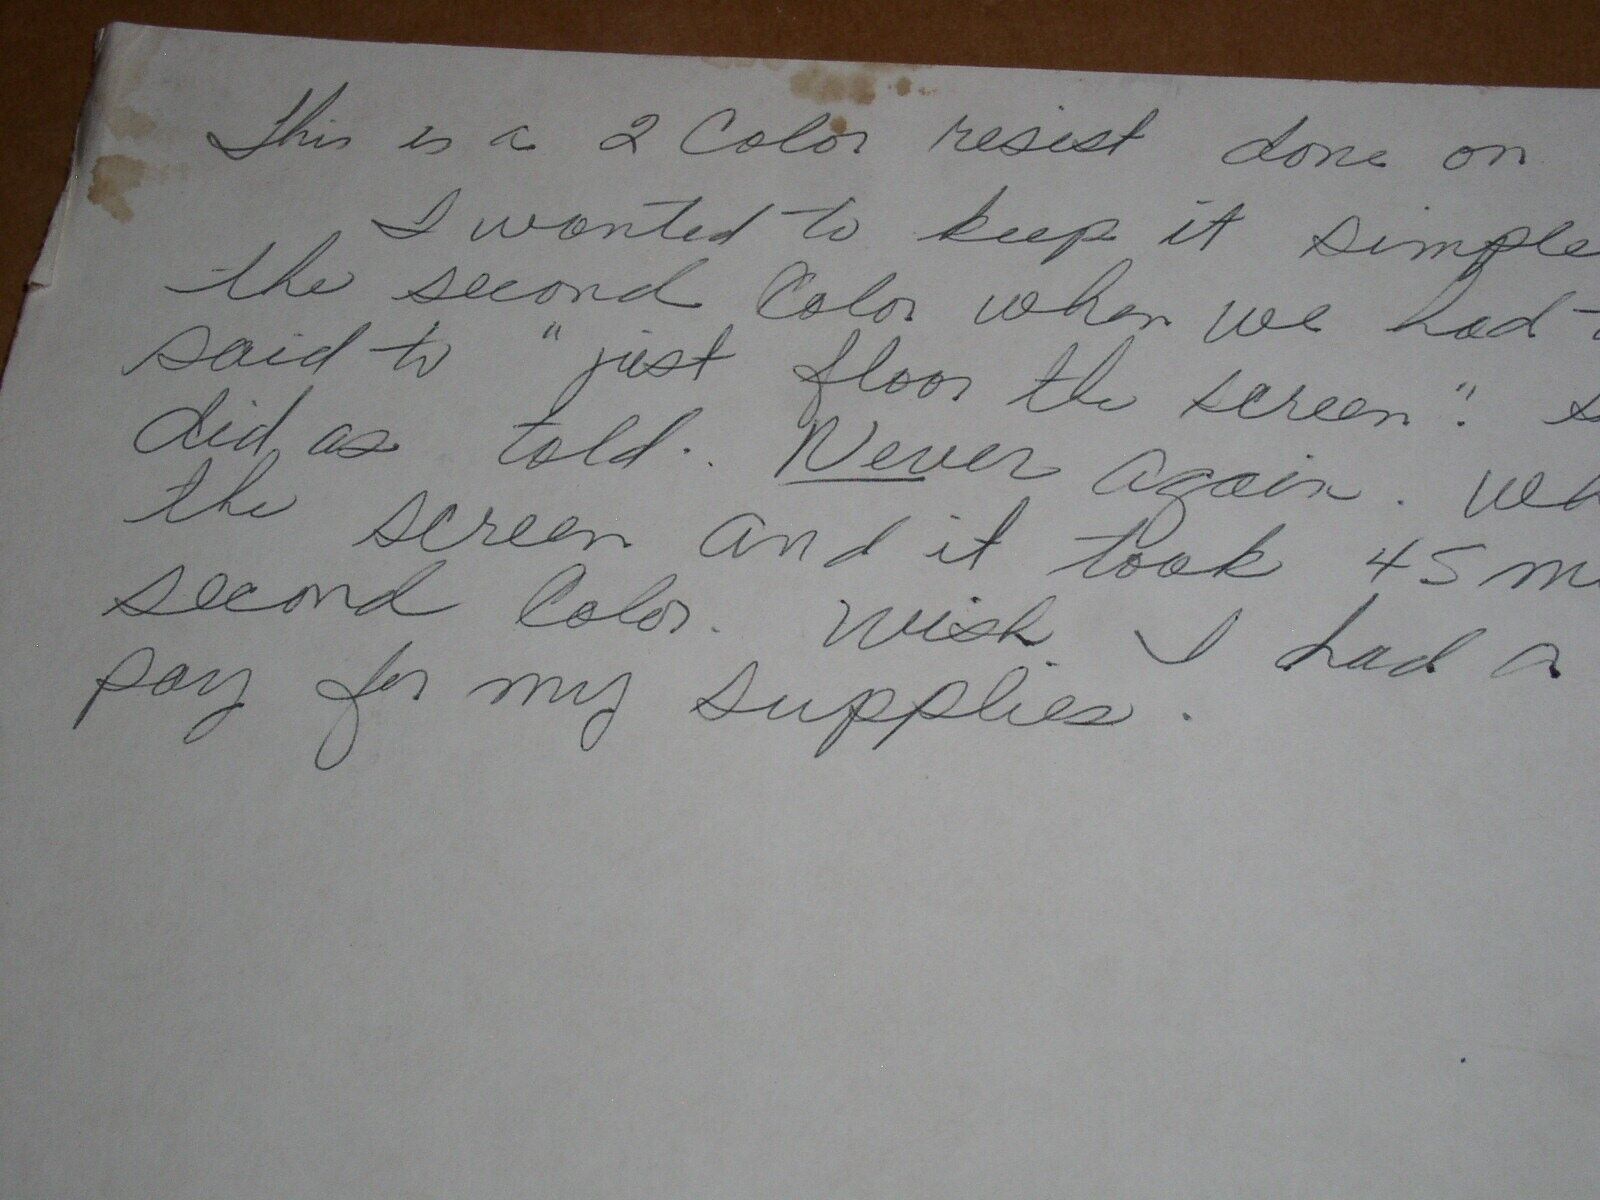 This is a 2 Color resist done on
I wanted to keep it simple
the second Color when we had
said to "just floor the screen".
did as told. Never again.
the screen and it took 45
second Color. Wish I had a
pay for my supplies.